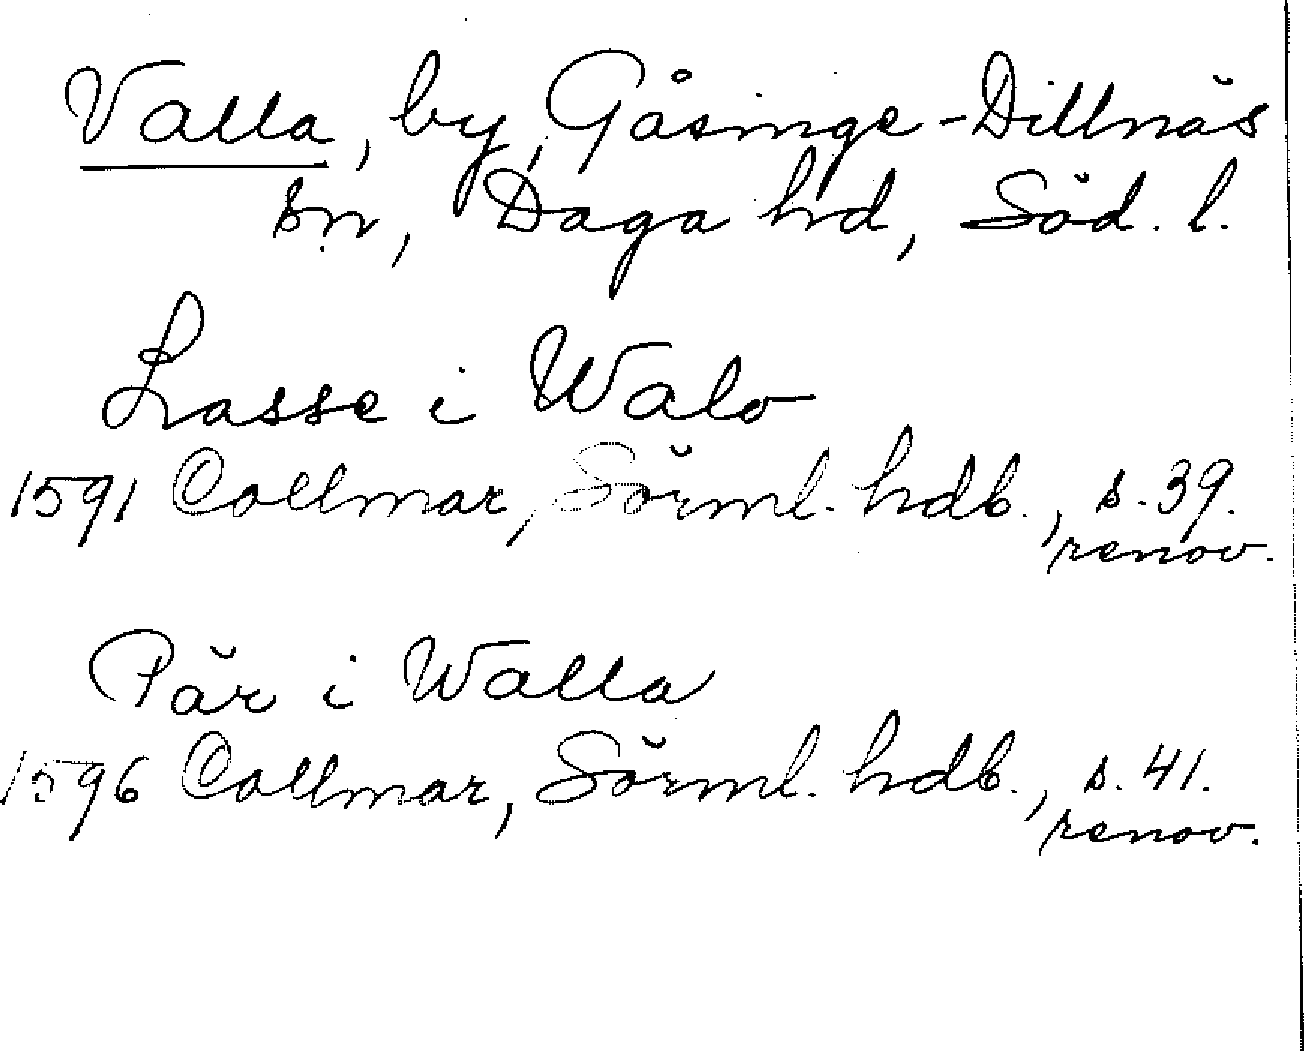 Valla, by, Gåsinge-Dillnäs
sn, Daga hd, Söd. l.
Lasse i Walo
1591 Collmar, Sörml. hdb., s. 39.
renov.
Pär i Walla
1596 Collmar, Sörml. hdb., s. 41.
renov.